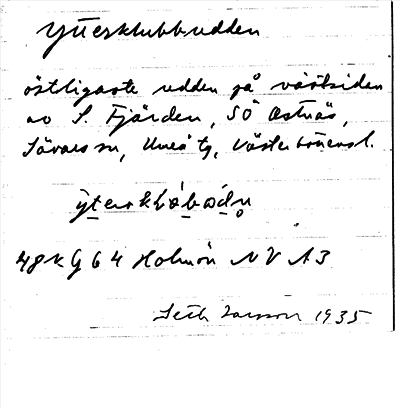 Ytterklubbudden
östligaste udden på västsidan
av S. Fjärden, SÖ Ostnäs,
Sävars sn, Umeå tg, Västerbottens l.
48k G 64 Holmön NV A3
Seth Larsson 1935